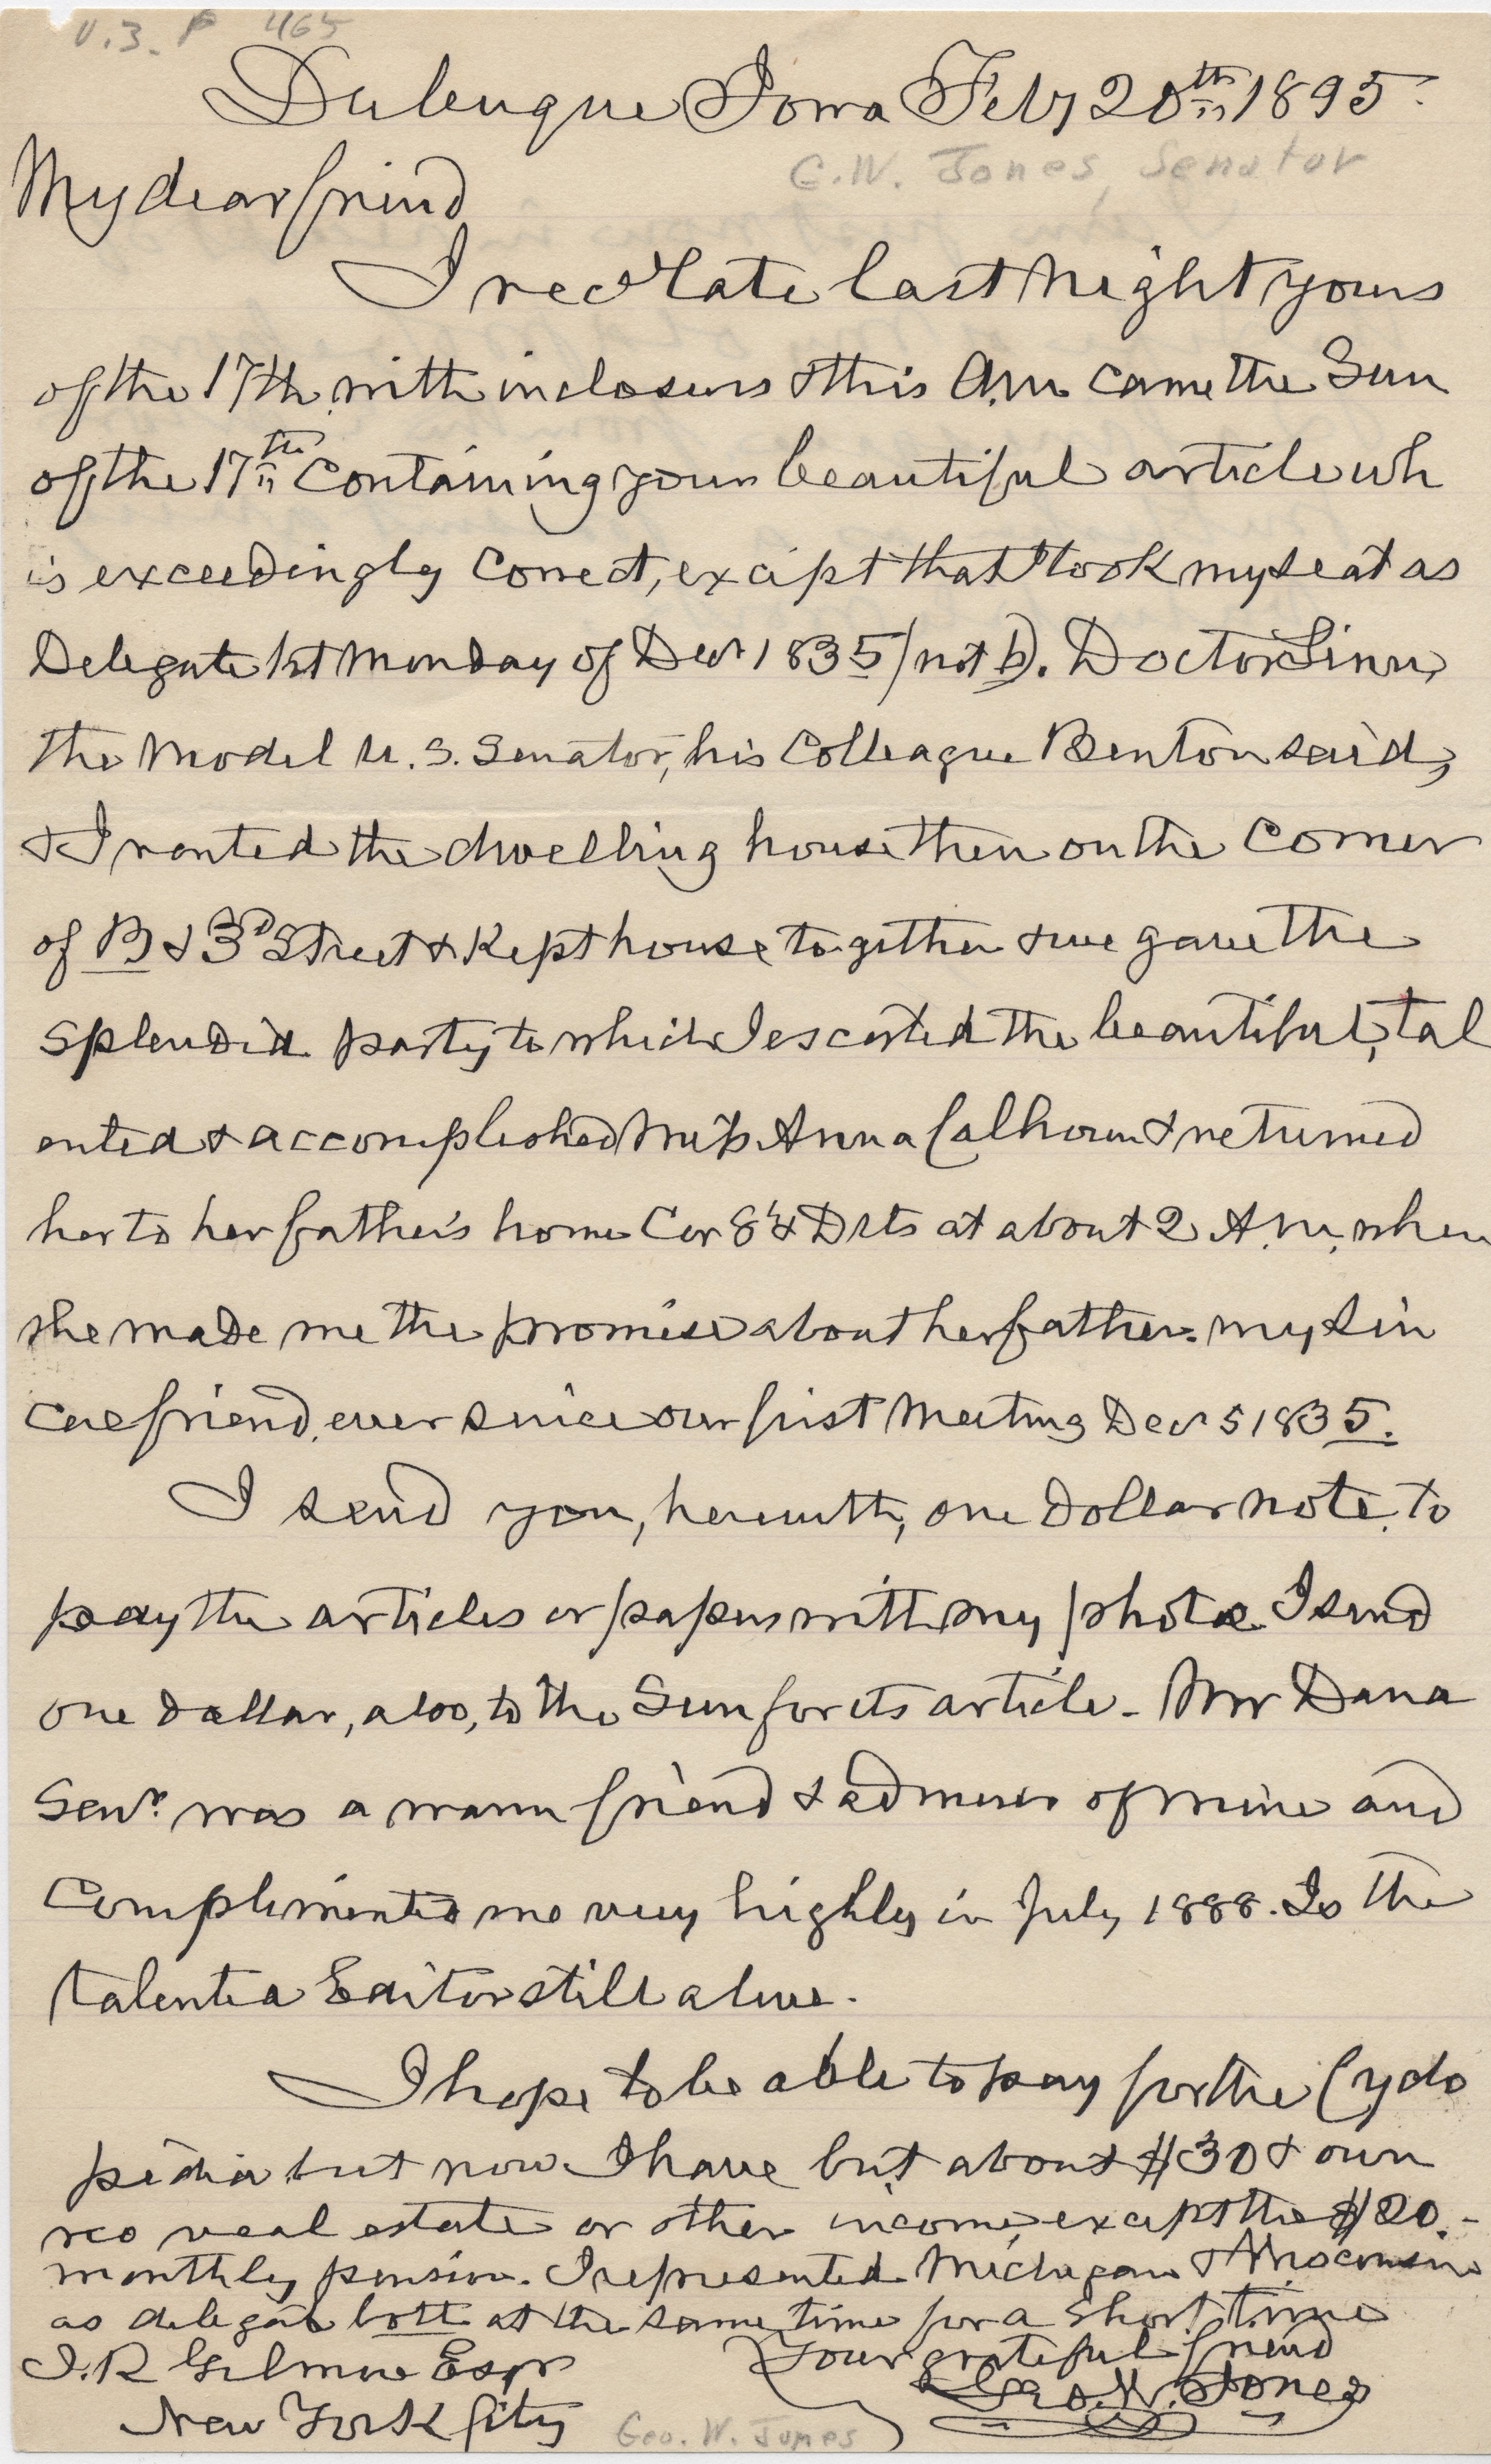 V.3. P 465
Dubuque Iowa Feby 20th 1895.
G.W. Jones, Senator
My dear friend
I recd late last night yours
of the 17th with inclosures & this A.m. came the Sun
of the 17th containing your beautiful article wh
is exceedingly correct, except that I took my seat as
Delegate 1st Monday of Decr 1835 (not 6). Doctor Linn,
the Model U.S. Senator, his colleague Benton said,
& I rented the dwelling house then on the corner
of B & 3d Street & Kept house together & we gave the
splendid party to which I escorted the beautiful, tal
ented & accomplished Miss Anna Calhoun & returned
her to her father's home Cor 8th & D sts at about 2 A.m. when
she made me the promise about her father. my sin
cere friend, ever since our first Meeting Decr 5 1835.
I send you, herewith, one dollar note, to
pay the articles or papers with my photos. I send
one dollar, also, to the Sun for its article - Mr Dana
Senr. was a warm friend & admirer of mine and
complimented me very highly in July 1888. Is the
talented Editor still alive.
I hope to be able to pay for the Cyclo
pedia but now I have but about $30 & own
no real estate or other income, except the $20.-
monthly pension. I represented Michigan & Wisconsin
as delegate both at the same time for a short time
Your grateful friend
J.R Gilmore Esqr
Geo. W. Jones
New York City
Geo. W. Jones